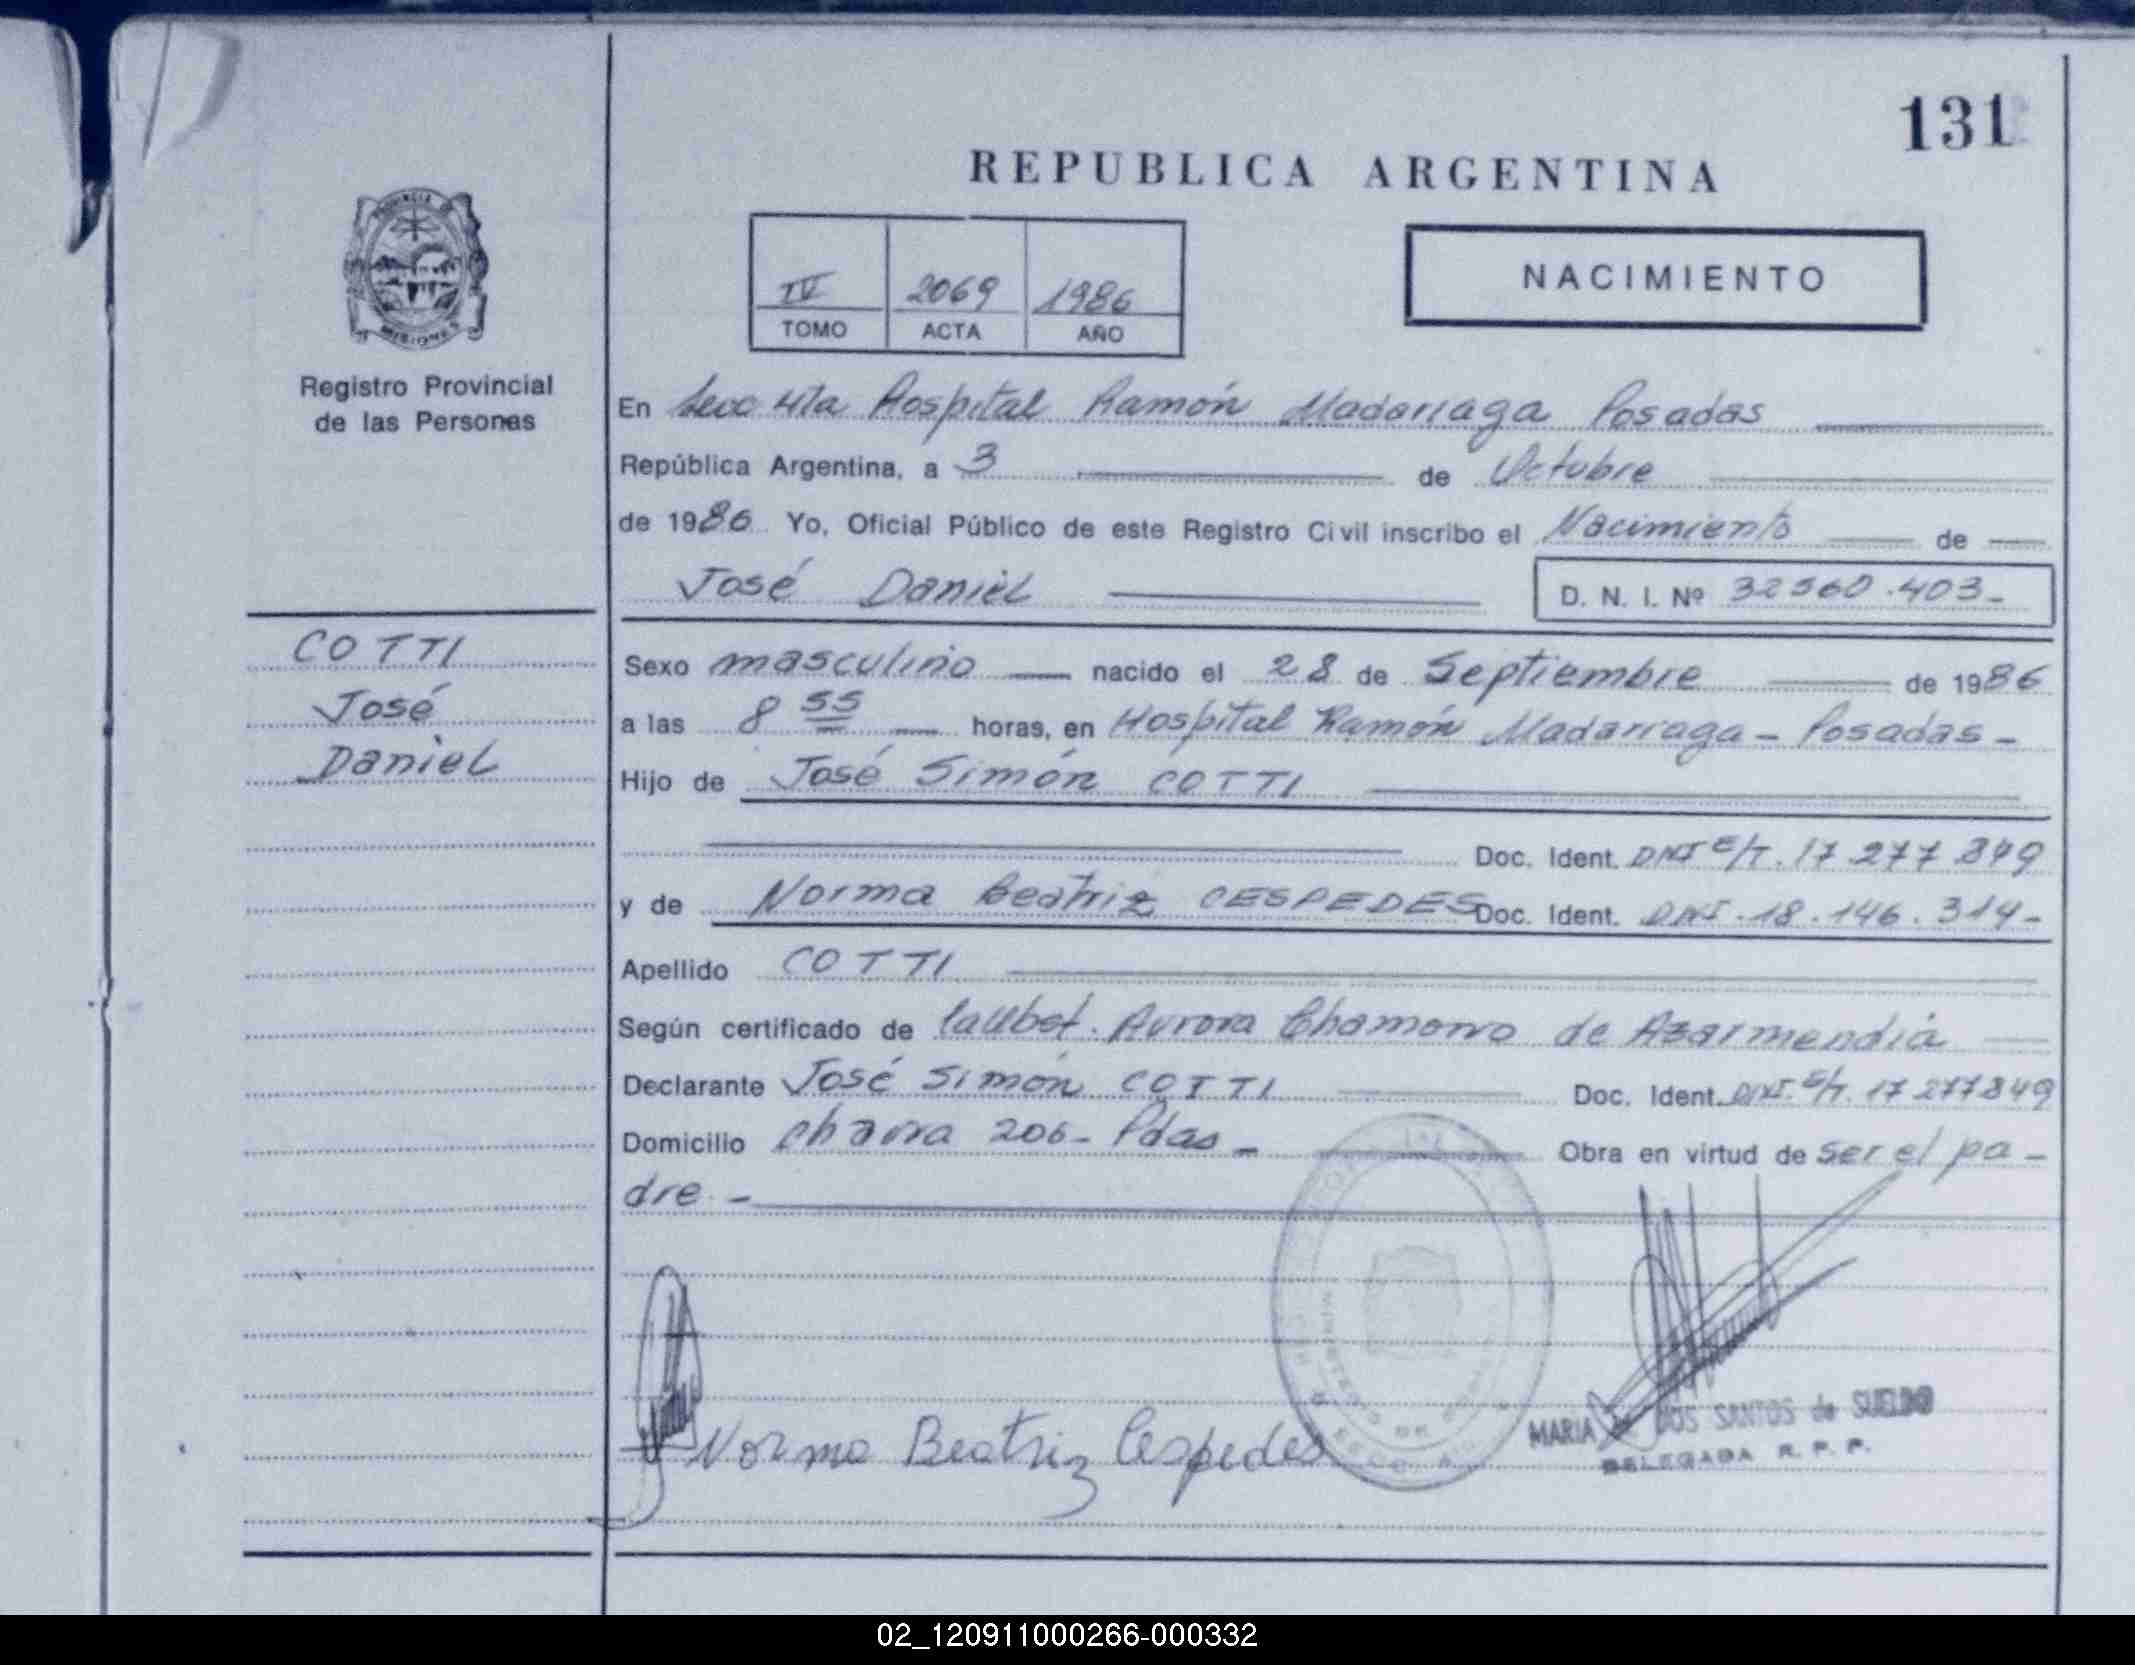 131
REPUBLICA ARGENTINA
PROVINCIA DE
MISIONES
Registro Provincial
de las Personas
IV 2069 1986
TOMO ACTA AÑO
NACIMIENTO
En Secc 4ta Hospital Ramón Madariaga Posadas
República Argentina, a 3 de Octubre
de 1986 Yo, Oficial Público de este Registro Civil inscribo el Nacimiento de
José Daniel D. N. I. Nº 32560.403-
COTTI
José
Daniel
Sexo masculino nacido el 28 de Septiembre de 1986
a las 8 55 horas, en Hospital Ramón Madariaga - Posadas -
Hijo de José Simón COTTI
Doc. Ident. DNI E/T. 17.277 849
y de Norma Beatriz CESPEDES Doc. Ident. DNI. 18.146.314-
Apellido COTTI
Según certificado de Aurora Chamorro de Azarmendia
Declarante José Simón COTTI Doc. Ident. DNI. E/T. 17 277849
Domicilio Chacra 206- Pdas - Obra en virtud de ser el pa-
dre -
Norma Beatriz Cespedes
MARIA DOS SANTOS de SUELDO
DELEGADA R. P. P.
02_120911000266-000332